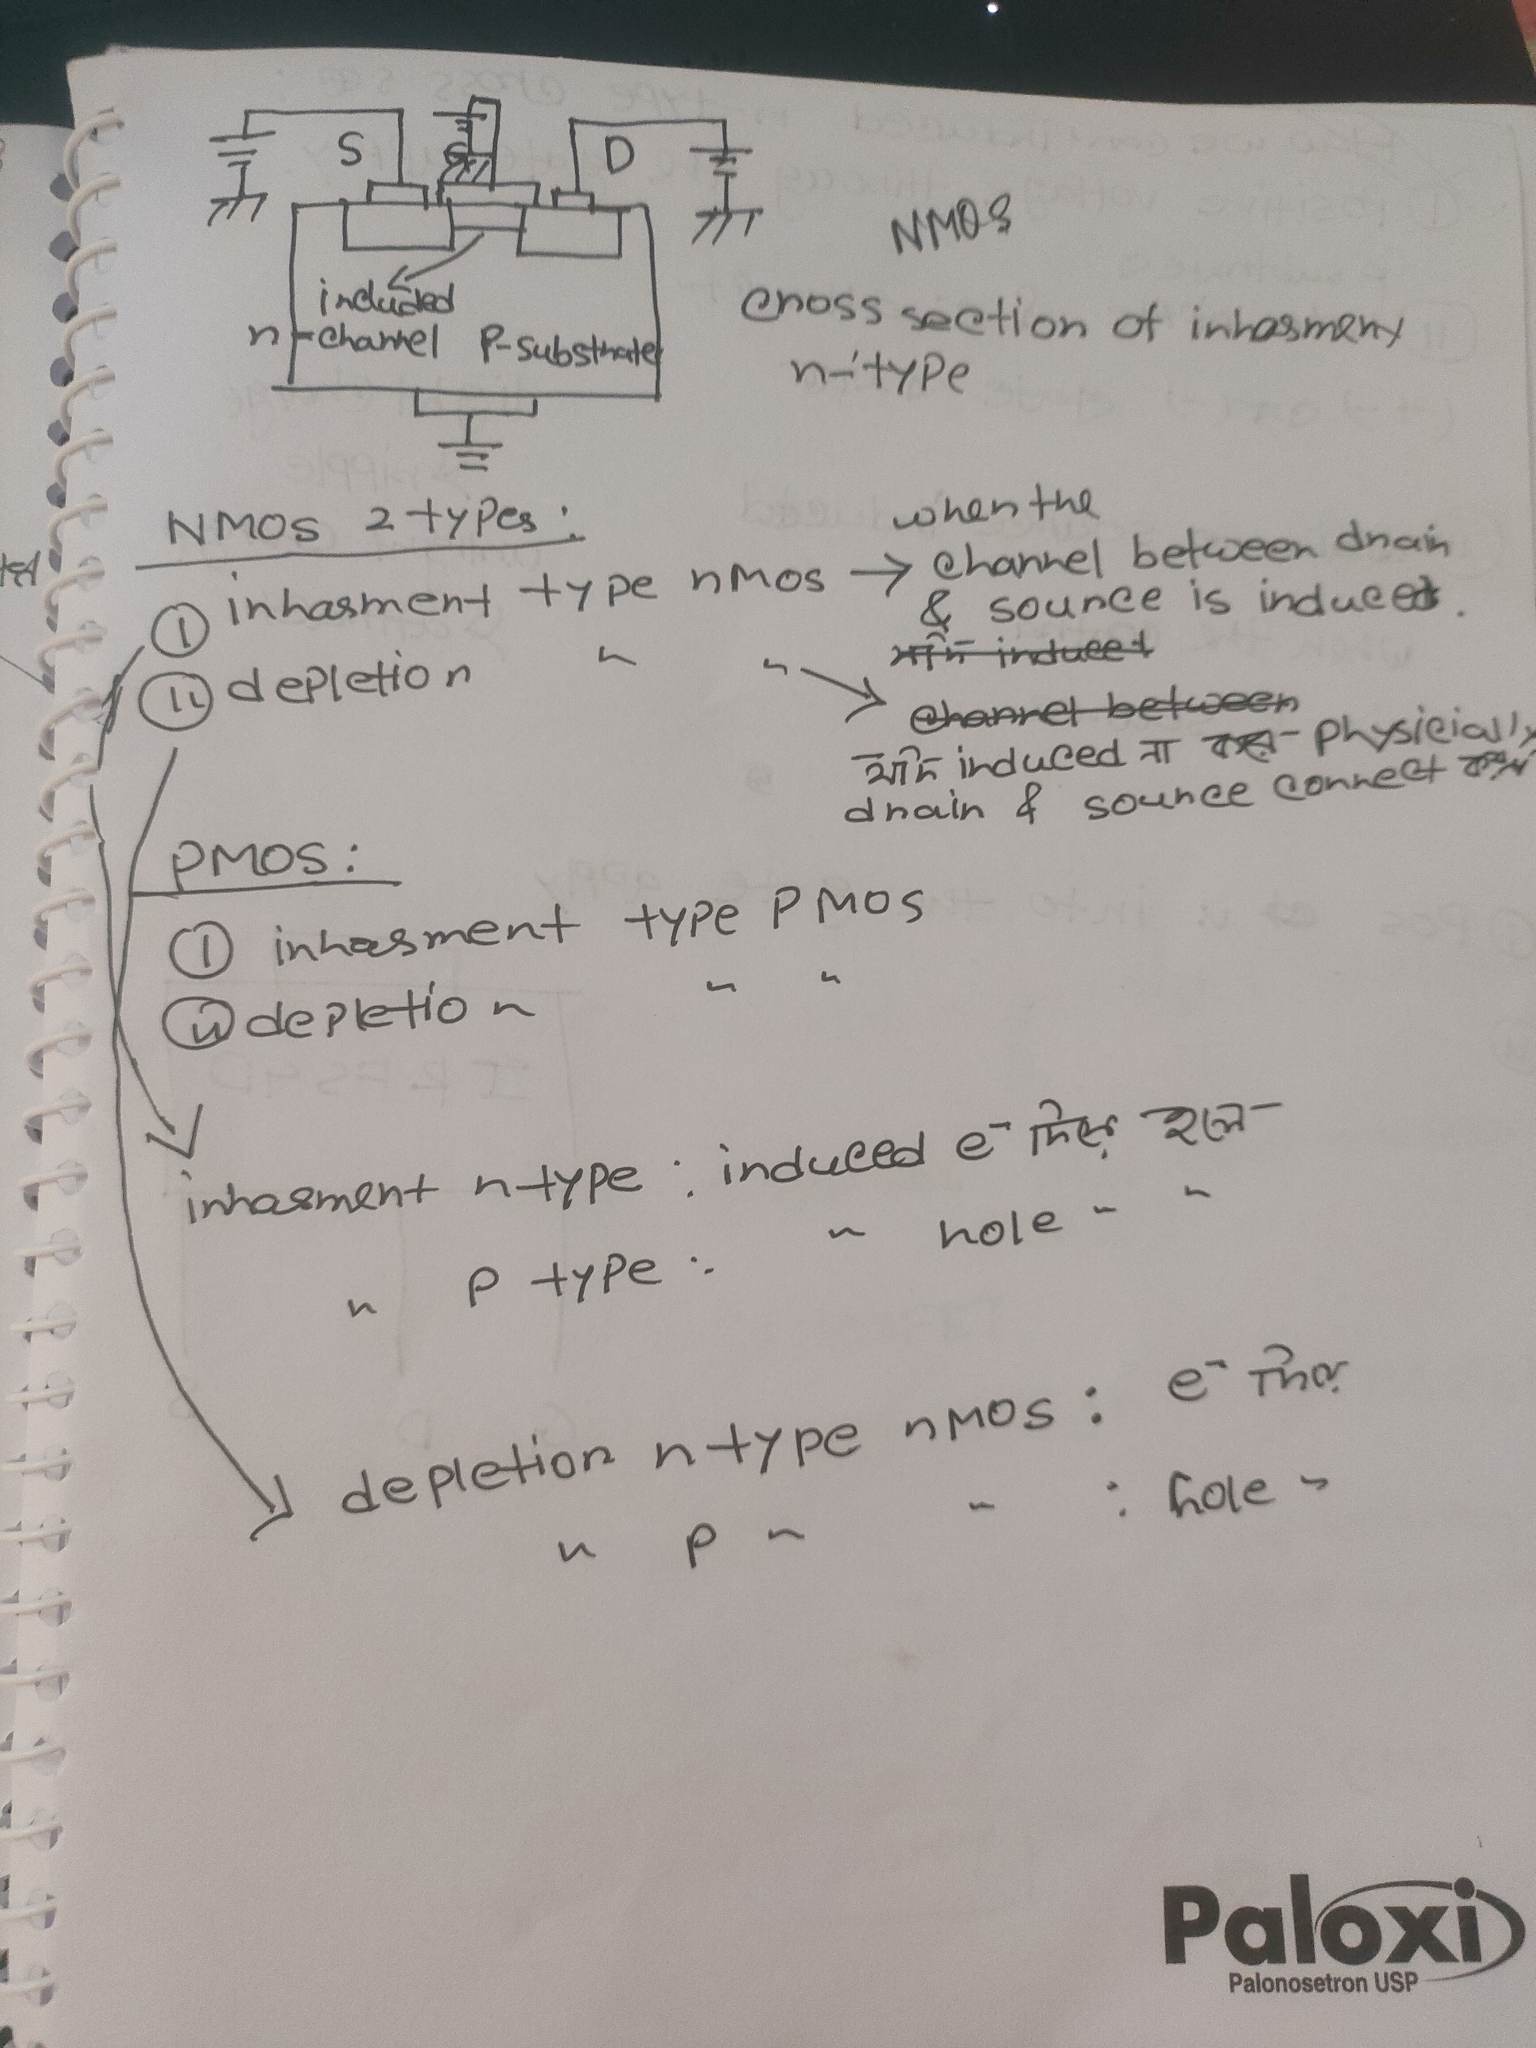 S
D
NMOS
included
n-channel
P-substrate
cross section of inhasment
n-type
NMOS 2 types:
i inhasment type nMOS → when the
channel between drain
& source is induced.
ii depletion " " →
যদি induced না করে physicially
drain & source connect করে
PMOS:
i inhasment type PMOS
ii depletion " "
inhasment n type : induced e⁻ দিয়ে হলে
" P type : " hole " "
depletion n type nMOS : e⁻ দিয়ে
" P " " : hole "
Paloxi
Palonosetron USP